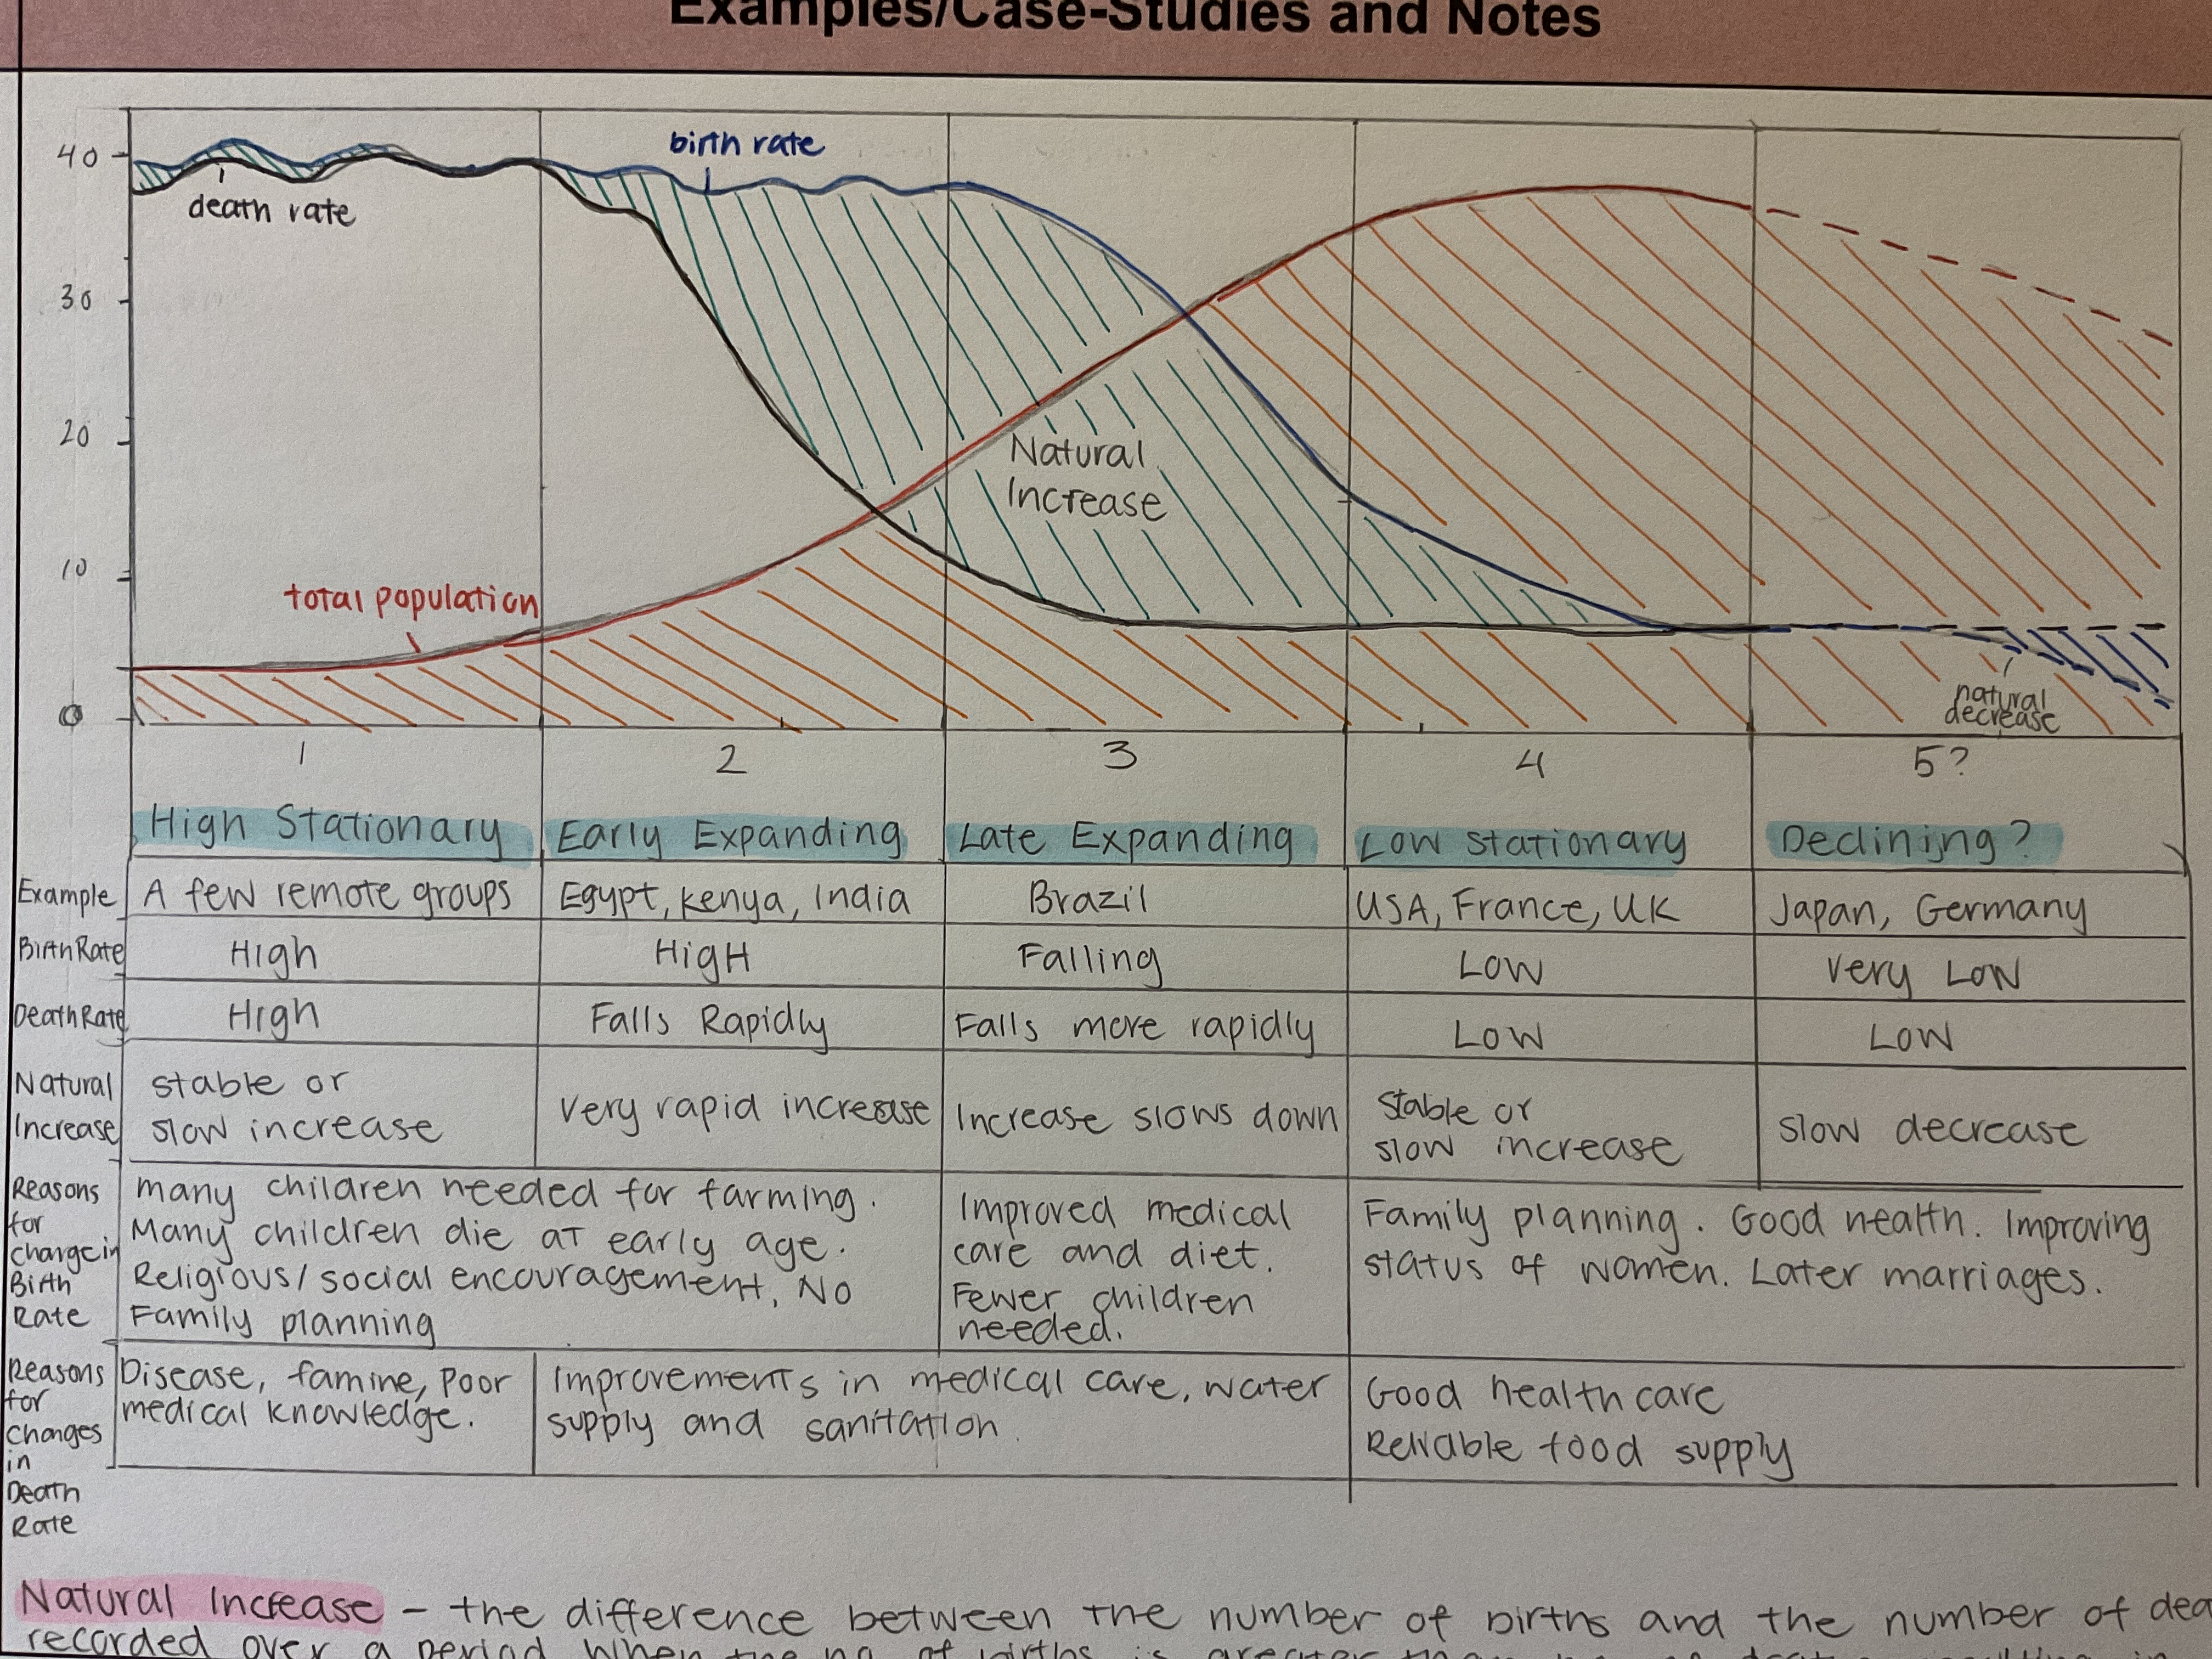 Examples/Case-Studies and Notes
40
30
20
10
0
birth rate
death rate
total population
Natural
Increase
natural
decrease
1 2 3 4 5?
High Stationary Early Expanding Late Expanding Low stationary Declining?
Example A few remote groups Egypt, Kenya, India Brazil USA, France, UK Japan, Germany
Birth Rate High HigH Falling Low very Low
Death Rate High Falls Rapidly Falls more rapidly Low Low
Natural
Increase
stable or
slow increase
very rapid increase
Increase slows down
stable or
slow increase
slow decrease
Reasons
for
change in
Birth
Rate
many children needed for farming.
Many children die at early age.
Religious/social encouragement, No
Family planning
Improved medical
care and diet.
Fewer children
needed.
Family planning. Good health. Improving
status of women. Later marriages.
Reasons
for
Changes
in
Death
Rate
Disease, famine, Poor
medical knowledge.
Improvements in medical care, water
supply and sanitation.
Good health care
Reliable food supply
Natural Increase – the difference between the number of births and the number of dea
recorded over a period when the no. of births is greater